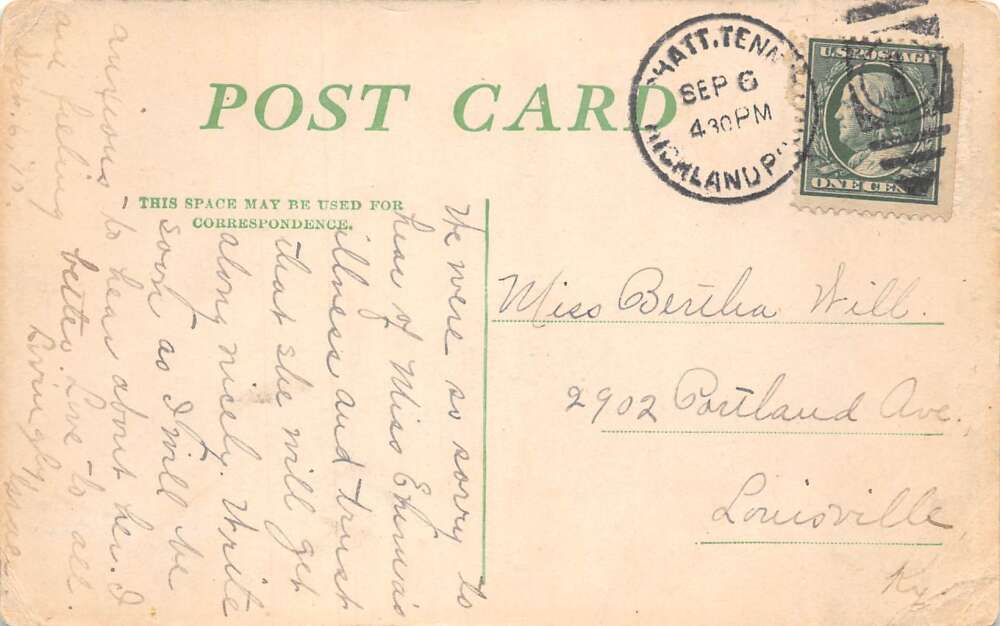 POST CARD
THIS SPACE MAY BE USED FOR
CORRESPONDENCE.
CHATT. TENN.
SEP 6
4 30 PM
HIGHLAND P
U.S. POSTAGE
ONE CENT
Miss Bertha Will.
2902 Portland Ave.
Louisville
Ky.
We were so sorry to
hear of Miss Emma's
illness and trust
that she will get
along nicely. Write
soon as I will be
anxious to hear about her. I
am feeling better. Love to all.
Lovingly